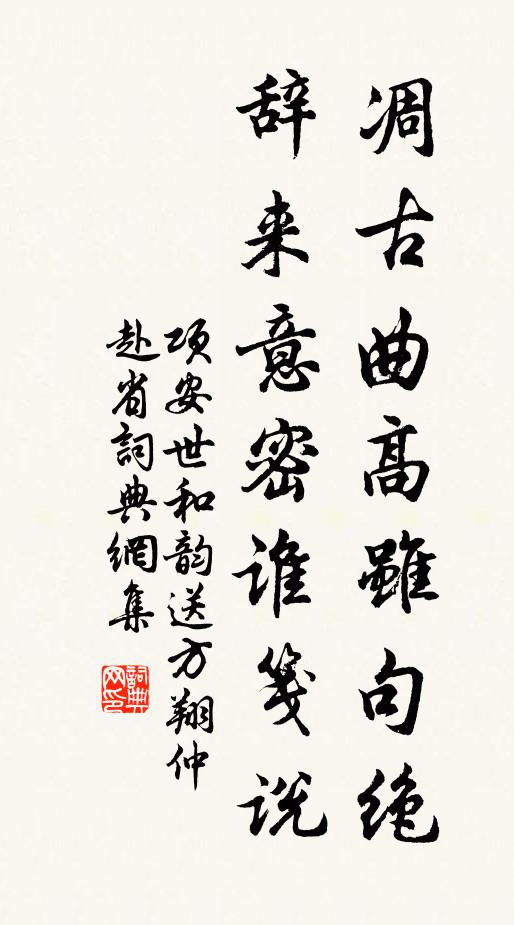 凋古曲高雖句绝
辞来意密谁笺说
项安世和韵送方翔仲
赴省詞典網集
詞典网印